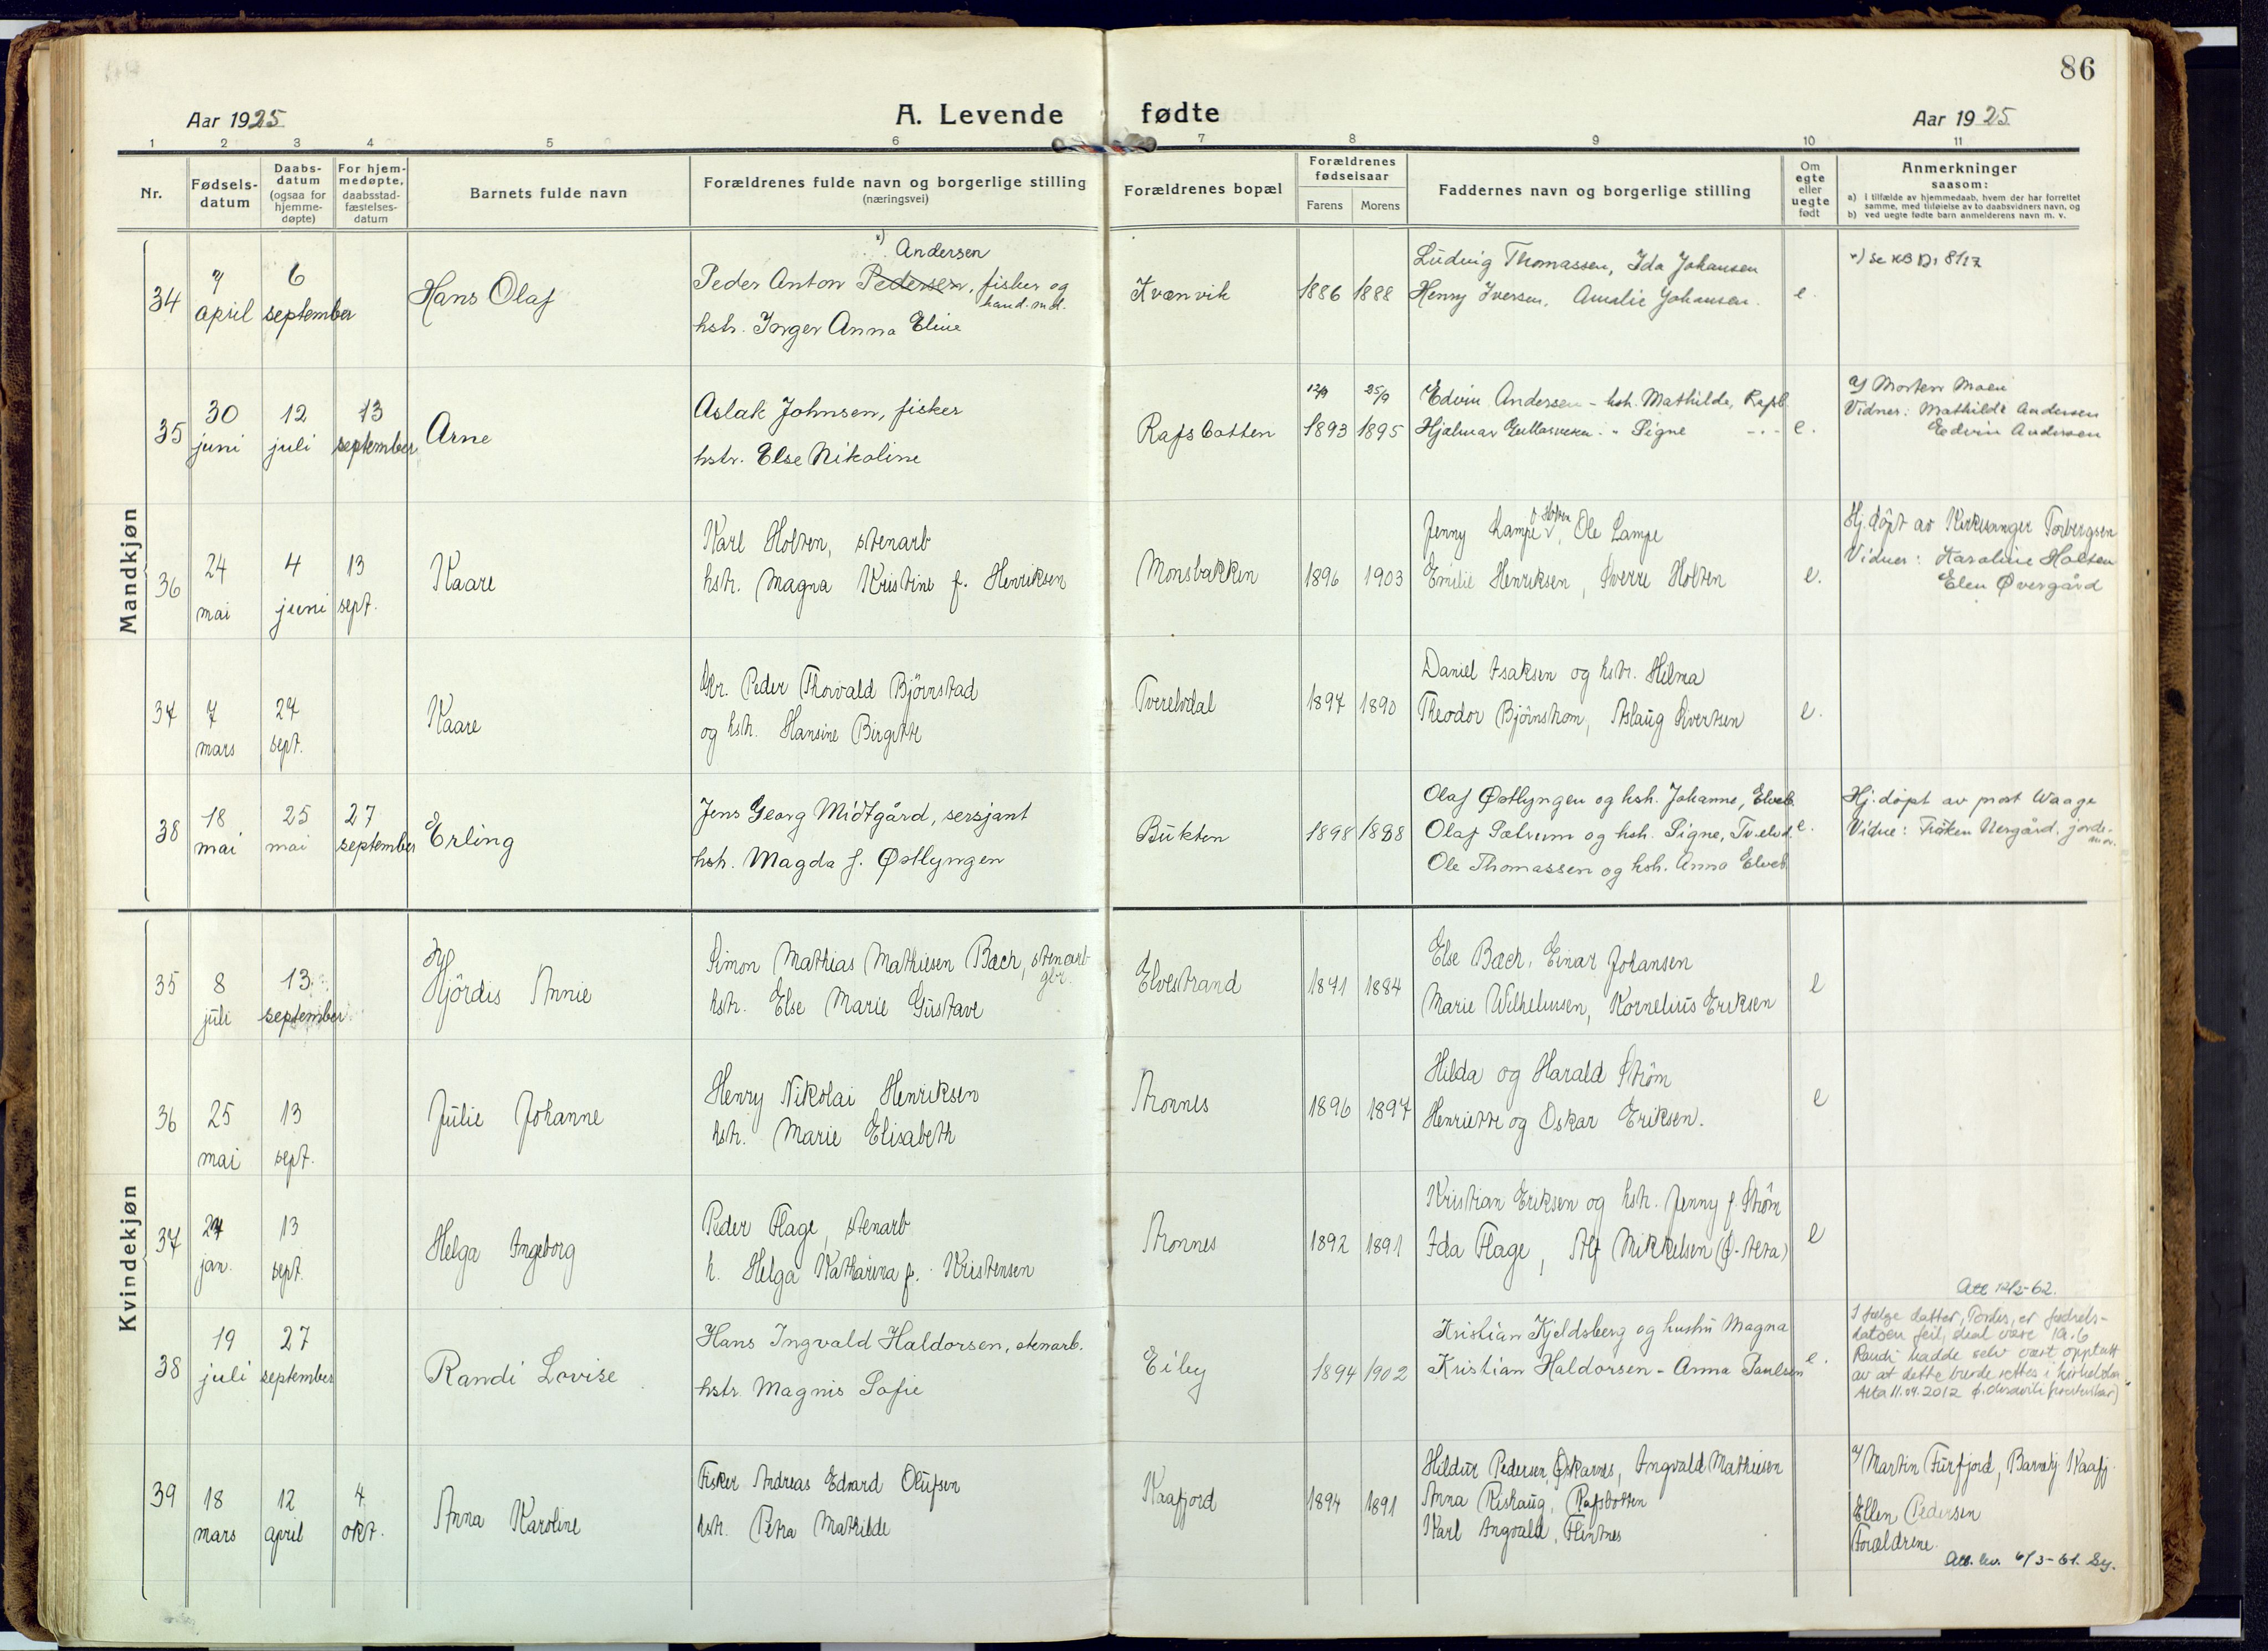 86
Aar 1925
A. Levende fødte
Aar 1925
1 2 3 4 5 6 7 8 9 10 11
Nr.
Fødsels-
datum
Daabs-
datum
(ogsaa for
hjemme-
døpte)
For hjem-
medøpte,
daabsstad-
fæstelses-
datum
Barnets fulde navn
Forældrenes fulde navn og borgerlige stilling
(næringsvei)
Forældrenes bopæl
Forældrenes
fødselsaar
Farens Morens
Faddernes navn og borgerlige stilling
Om
egte
eller
uegte
født
Anmerkninger
saasom:
a) i tilfælde av hjemmedaab, hvem der har forrettet
samme, med tilføielse av to daabsvidners navn, og
b) ved uegte fødte barn anmelderens navn m. v.
Mandkjøn
34
7 april
6 september
Hans Olaf
x) Andersen
Peder Anton Pedersen, fisker og
hand.md.
hstr. Inger Anna Eline
Kvænvik
1886 1888
Ludvig Thomassen, Ida Johansen
Henry Iversen, Amalie Johansen.
e.
x) Se KB D: 8/17
35
30 juni
12 juli
13 september
Arne
Aslak Johnsen, fisker
hstr. Else Nikoline
Rafsbotten
12/9 25/9
1893 1895
Edvin Andersen - hstr. Mathilde, Rafsb.
Hjalmar - " Signe - " -
e.
a) Morten Moen
Vidner: Mathilde Andersen
Edvin Andersen
36
24 mai
4 juni
13 sept.
Kaare
Karl Holten, stenarb
hstr. Magna Kristine f. Henriksen
Monsbakken
1896 1903
Jenny Lampe f. Holten, Ole Lampe
Emilie Henriksen, Sverre Holten
e.
Hj. døpt av Kirkesanger Torbergsen
Vidner: Karoline Holten
Elen Øvergård
37
7 mars
27 sept.
Kaare
Gbr. Peder Thorvald Bjørnstad
og hstr. Hansine Birgitte
Tverelvdal
1897 1890
Daniel Isaksen og hstr. Hilma
Theodor Bjørnstrom, Aslaug Sivertsen
e.
38
18 mai
25 mai
27 september
Erling
Jens Georg Midtgård, sersjant
hstr. Magda f. Østlyngen
Bukten
1898 1888
Olaf Østlyngen og hstr. Johanne, Elveb.
Olaf Sælrum og hstr. Signe, Tv.elvd.
Ole Thomassen og hstr. Anna Elveb.
e.
Hj. døpt av prost Waage
Vidne: Frøken Nergård, jord-
mor.
Kvindekjøn
35
8 juli
13 september
Hj
Hjördis Annie
Simon Mathias Mathiesen Bach, stenarb
gbr.
hstr. Else Marie Gustave
Elvestrand
1871 1884
Else Bach, Einar Johansen
Marie Wilhelmsen, Kornelius Eriksen
e
36
25 mai
13 sept.
Julie Johanne
Henry Nikolai Henriksen
hstr. Marie Elisabeth
Thomnes
1896 1897
Hilda og Harald Strøm
Henriette og Oskar Eriksen.
e
37
24 jan.
13 sept.
Helga Ingeborg
Peder Flage, stenarb
h. Helga Katharina f. Kristensen
Thomnes
1892 1891
Kristian Eriksen og hstr. Jenny f. Strøm
Ida Flage, Alf Mikkelsen (Ø-Alta)
e
38
19 juli
27 september
Randi Lovise
Hans Ingvald Haldorsen, stenarb.
hstr. Magnis Sofie
Eiby
1894 1902
Kristian Kjeldsberg og hustru Magna
Kristian Haldorsen - Anna Paulsen
e.
Att 12/2-62.
I følge datter, Tordis, er fødsels-
datoen feil, skal være 19.6
Randi hadde selv vært opptatt
av at dette burde rettes i kirkebøker
Alta 11.09.2012
39
18 mars
12 april
4 okt.
Anna Karoline
Fisker Andreas Edvard Olufsen
hstr. Petra Mathilde
Kaafjord
1894 1891
Hildur Pedersen, Oskarnes, Ingvald Mathiesen
Anna Rishaug, Rafsbotten
Karl Ingvald, Flintnes
a) Martin Furfjord, Barnebj. Kaafj.
Ellen Pedersen
Forældrene.
Att. lev. 6/3-61. Sy.